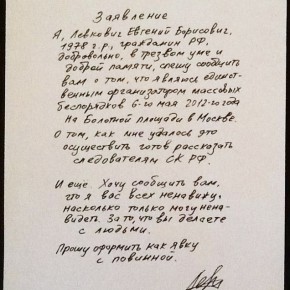 Заявление
Я, Левкович Евгений Борисович,
1978 г.р., гражданин РФ,
добровольно, в трезвом уме и
доброй памяти, спешу сообщить
вам о том, что являюсь единст-
венным организатором массовых
беспорядков 6-го мая 2012-го года
На Болотной площади в Москве.
О том, как мне удалось это
осуществить готов рассказать
следователям СК РФ.
И ещё. Хочу сообщить вам,
что я вас всех ненавижу,
насколько только могу нена-
видеть. За то, что вы делаете
с людьми.
Прошу оформить как явку
с повинной.